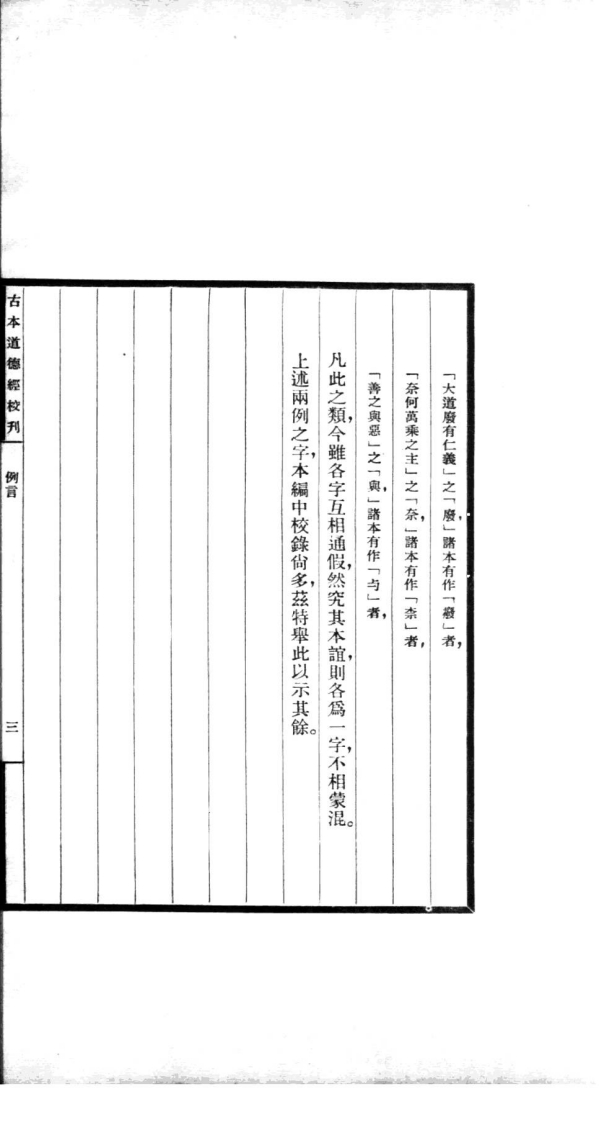 「大道廢有仁義」之「廢，」諸本有作「癈」者，
「奈何萬乘之主」之「奈，」諸本有作「柰」者，
「善之與惡」之「與，」諸本有作「与」者，
凡此之類，今雖各字互相通假，然究其本誼，則各爲一字，不相蒙混。
上述兩例之字，本編中校錄尙多，茲特舉此以示其餘。
古本道德經校刊
例言
三